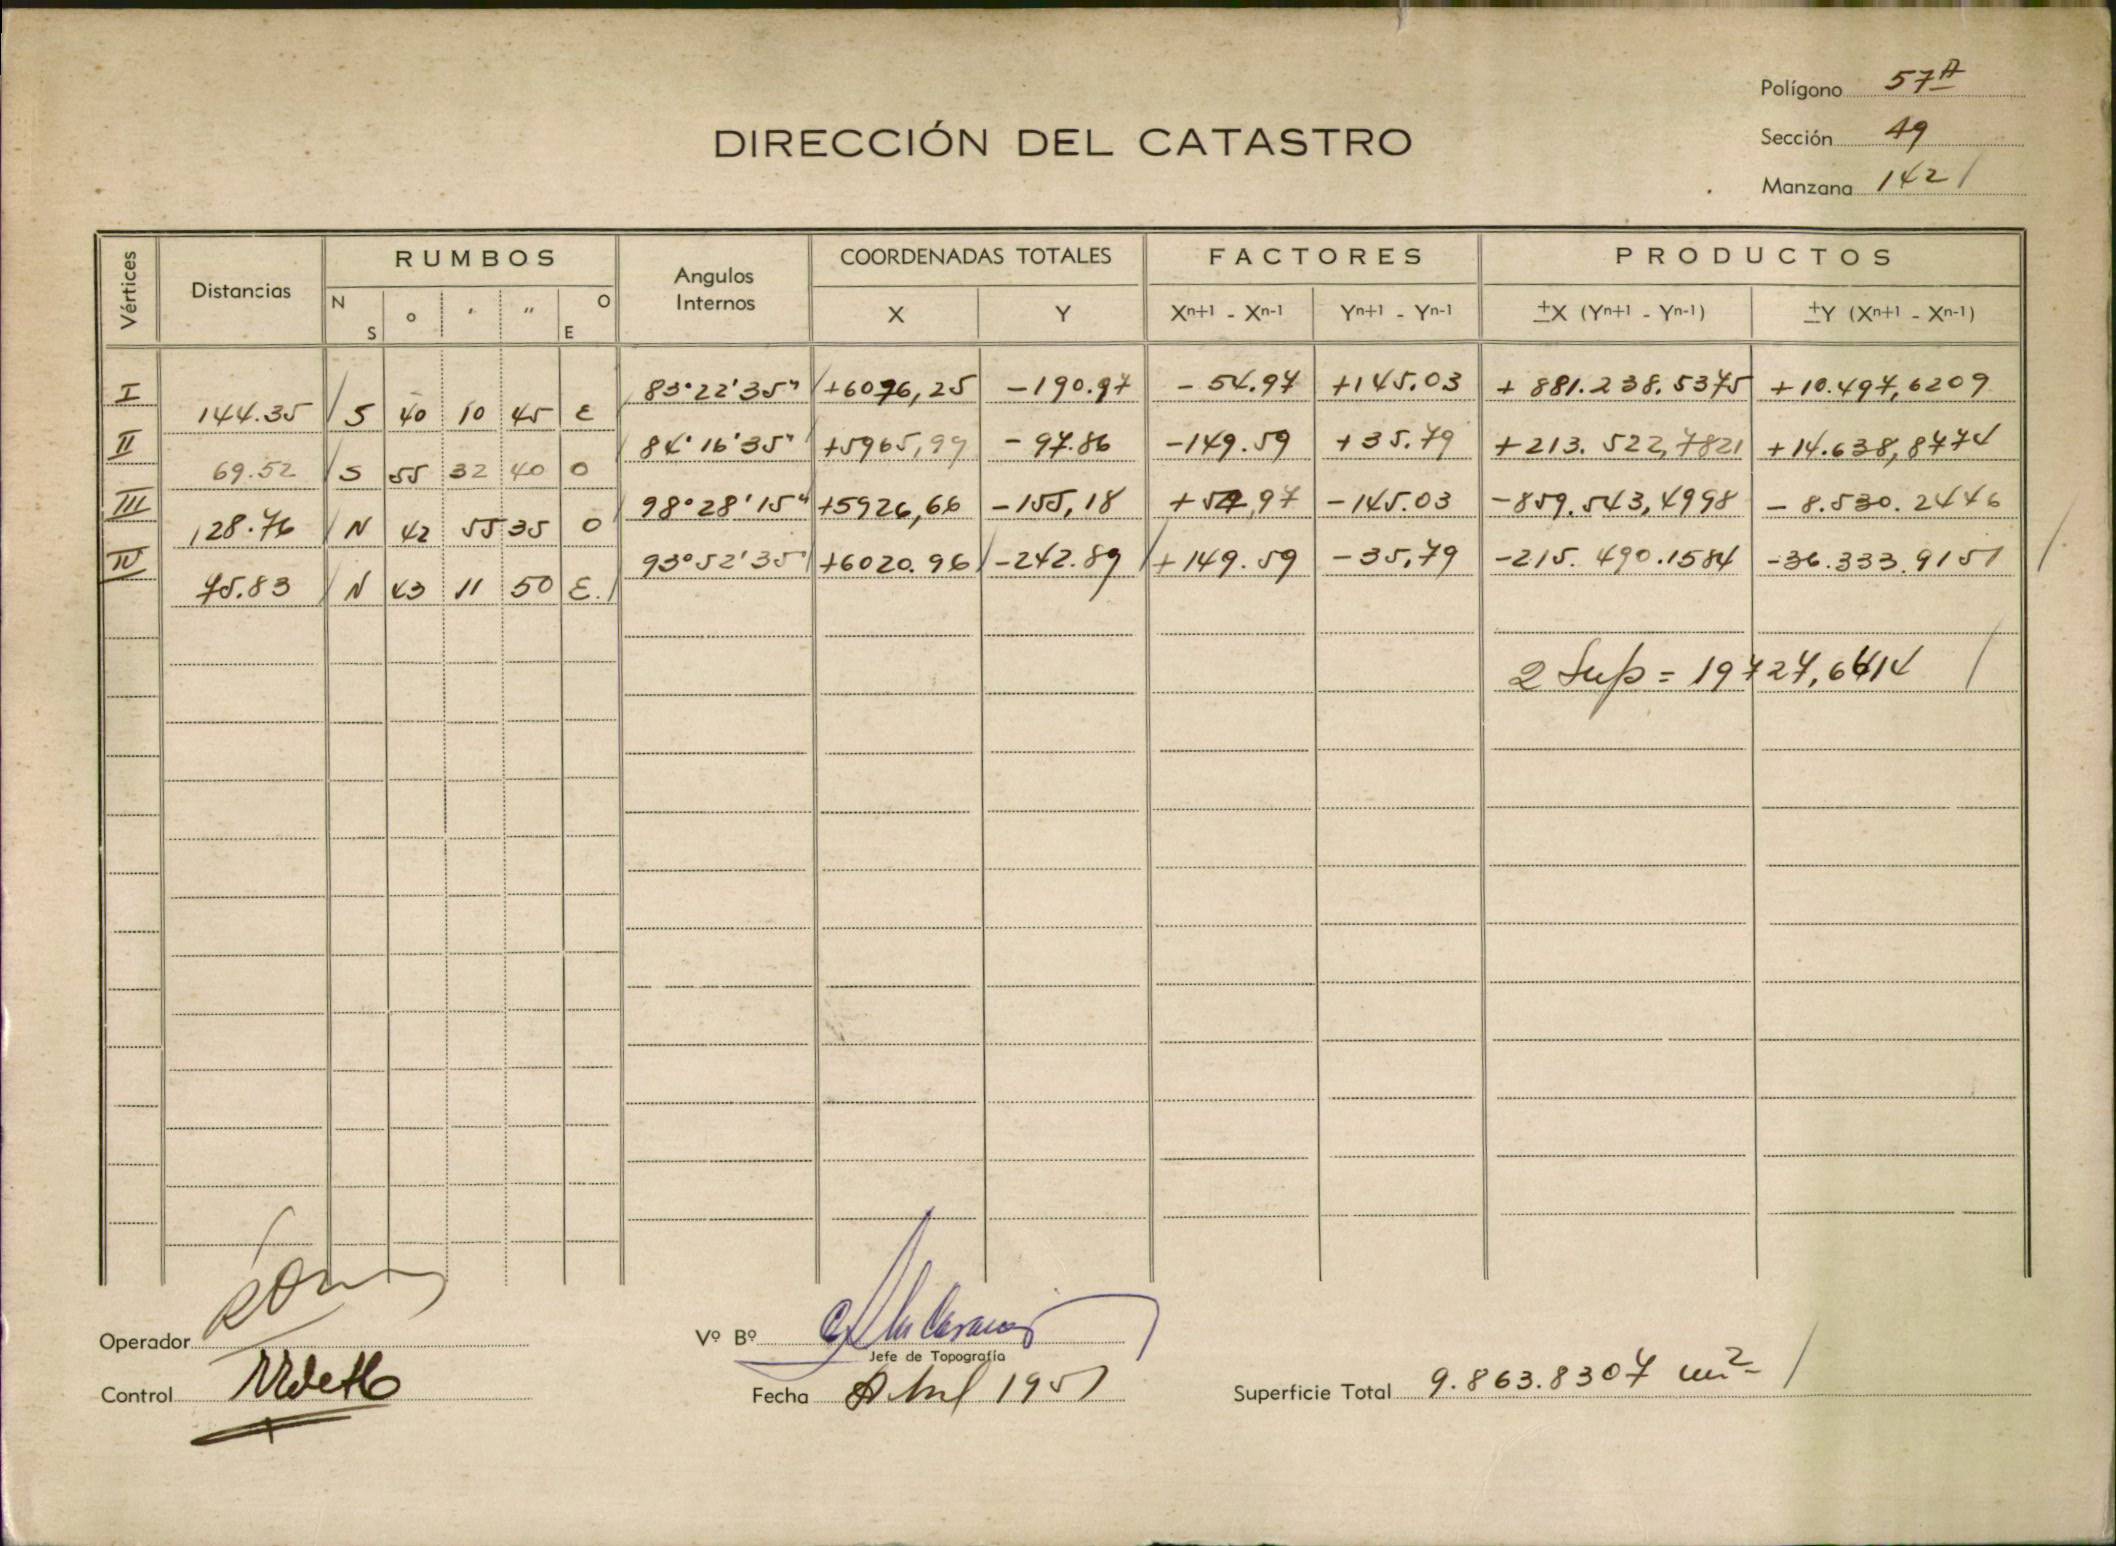 Polígono 57A
DIRECCIÓN DEL CATASTRO
Sección 49
Manzana 142
Vértices
Distancias
RUMBOS
N S ° ' " O E
Angulos Internos
COORDENADAS TOTALES
X Y
FACTORES
Xn+1 - Xn-1 Yn+1 - Yn-1
PRODUCTOS
±X (Yn+1 - Yn-1) ±Y (Xn+1 - Xn-1)
I 83°22'35" +6076,25 -190.97 -54.97 +145.03 +881.238.5375 +10.497,6209
144.35 S 40 10 45 E
II 84°16'35" +5965,99 -97.86 -149.59 +35.79 +213.522,7821 +14.638,8774
69.52 S 55 32 40 O
III 98°28'15" +5926,66 -155,18 +54,97 -145.03 -859.543,4998 -8.530.2446
128.76 N 42 55 35 O
IV 93°52'35" +6020.96 -242.89 +149.59 -35,79 -215.490.1584 -36.333.9151
75.83 N 43 11 50 E.
2 Sup = 19727,6614
Operador
Vº Bº
Jefe de Topografía
Control
Fecha Abril 1951
Superficie Total 9.863.8307 m2